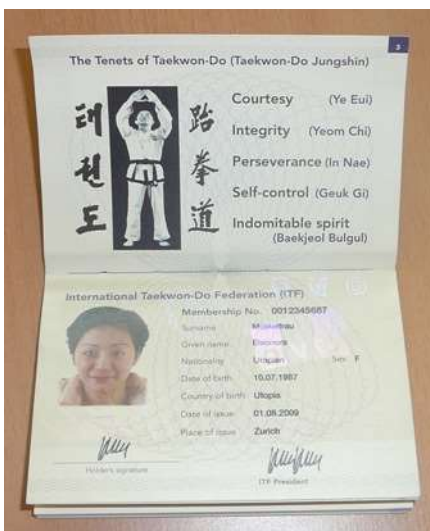 3
The Tenets of Taekwon-Do (Taekwon-Do Jungshin)
태권도
跆拳道
Courtesy (Ye Eui)
Integrity (Yeom Chi)
Perseverance (In Nae)
Self-control (Geuk Gi)
Indomitable spirit
(Baekjeol Bulgul)
International Taekwon-Do Federation (ITF)
Membership No. 0012345687
Surname Musterfrau
Given name Eleonora
Nationality Utopian Sex F
Date of birth 10.07.1987
Country of birth Utopia
Date of issue 01.08.2009
Place of issue Zurich
Holder's signature
ITF President